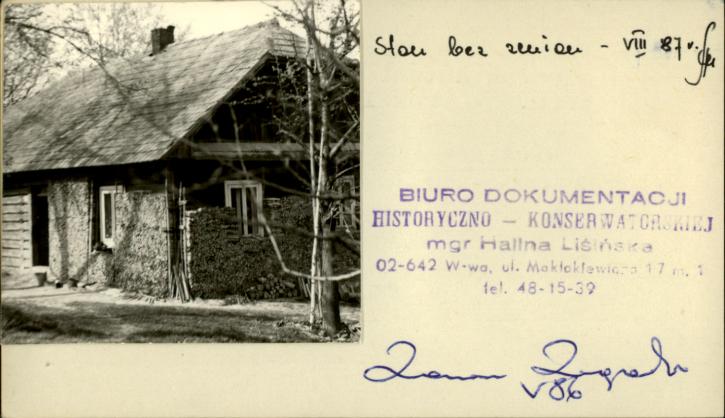 Stan bez zmian - VIII 87 r.
BIURO DOKUMENTACJI
HISTORYCZNO — KONSERWATORSKIEJ
mgr Halina Liśińska
02-642 W-wa, ul. Makłakiewicza 17 m. 1
tel. 48-15-39
Zenon
V 86